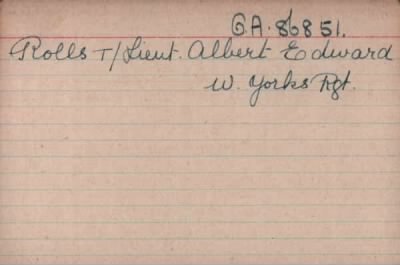 G.A. 86851.
Rolls T/Lieut. Albert Edward
W. Yorks Rgt.